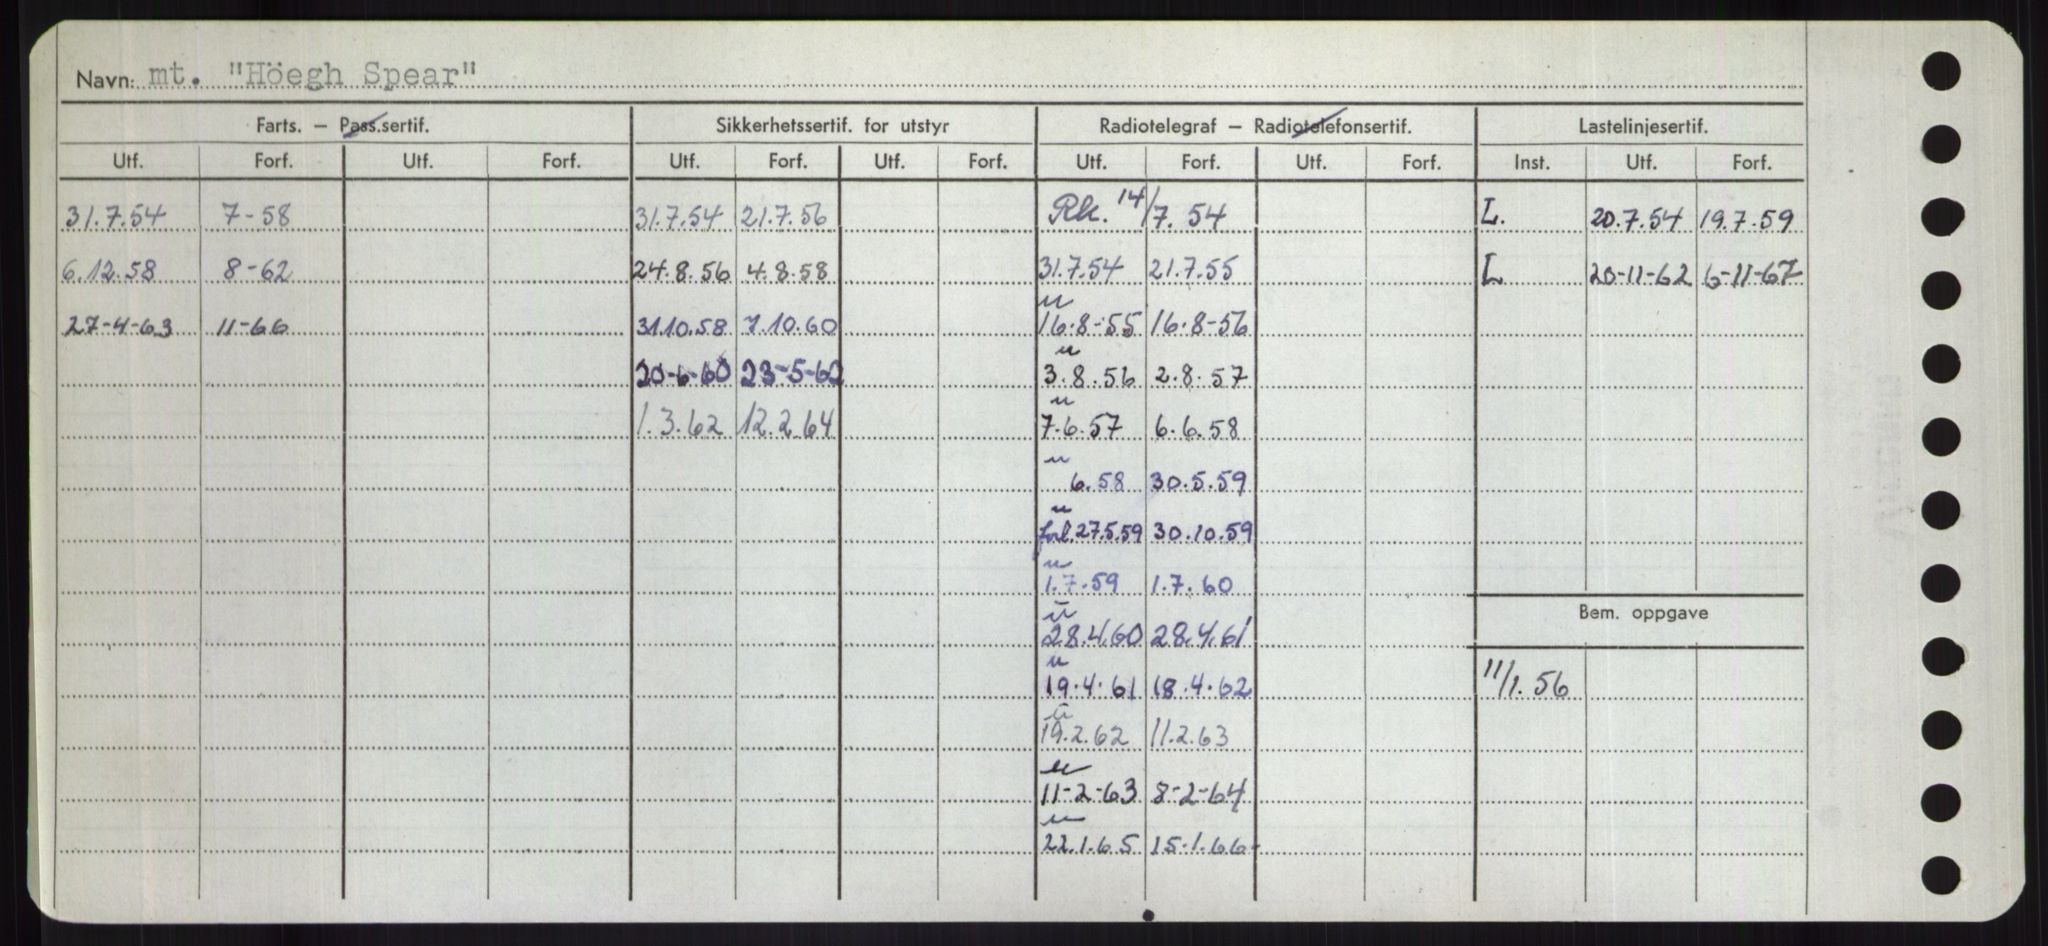 Navn: mt. "Höegh Spear"
Farts. – Pass.sertif. Sikkerhetssertif. for utstyr Radiotelegraf – Radiotelefonsertif. Lastelinjesertif.
Utf. Forf. Utf. Forf. Utf. Forf. Utf. Forf. Utf. Forf. Utf. Forf. Inst. Utf. Forf.
31.7.54 7-58 31.7.54 21.7.56 Rk. 14/7. 54 L. 20.7.54 19.7.59
6.12.58 8-62 24.8.56 4.8.58 31.7.54 21.7.55 L 20-11-62 6-11-67
u
27-4-63 11-66 31.10.58 7.10.60 16.8-55 16.8-56
u
20-6-60 23-5-62 3.8.56 2.8.57
u
1.3.62 12.2.64 7.6.57 6.6.58
u
6.58 30.5.59
u
forl. 27.5.59 30.10.59
u
1.7.59 1.7.60
u Bem. oppgave
28.4.60 28.4.61
u
19.4.61 18.4.62 11/1.56
u
19.2.62 11.2.63
u
11-2-63 8-2-64
u
22.1.65 15.1.66